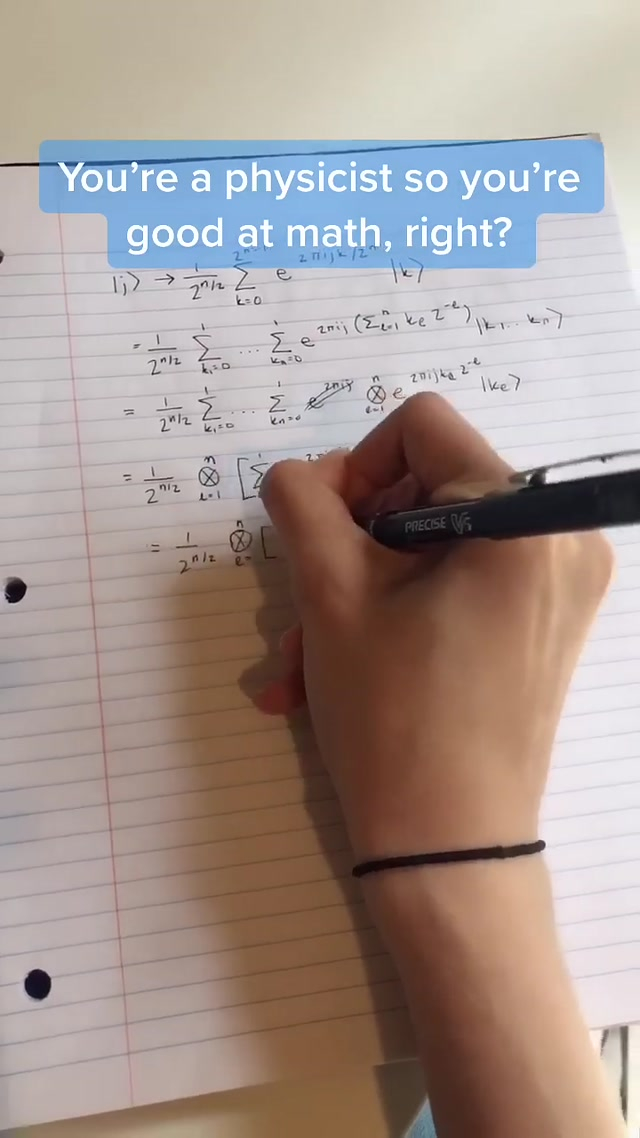 You're a physicist so you're
good at math, right?
|j⟩ → 1/2^{n/2} ∑_{k=0}^{2^n-1} e^{2πijk/2^n} |k⟩
= 1/2^{n/2} ∑_{k₁=0}^{1} ... ∑_{kₙ=0}^{1} e^{2πij(∑_{ℓ=1}^{n} k_ℓ 2^{-ℓ})} |k₁...kₙ⟩
= 1/2^{n/2} ∑_{k₁=0}^{1} ... ∑_{kₙ=0}^{1} ⊗_{ℓ=1}^{n} e^{2πijk_ℓ2^{-ℓ}} |k_ℓ⟩
= 1/2^{n/2} ⊗_{ℓ=1}^{n} [∑
= 1/2^{n/2} ⊗_{ℓ=}^{n} [
PRECISE V5